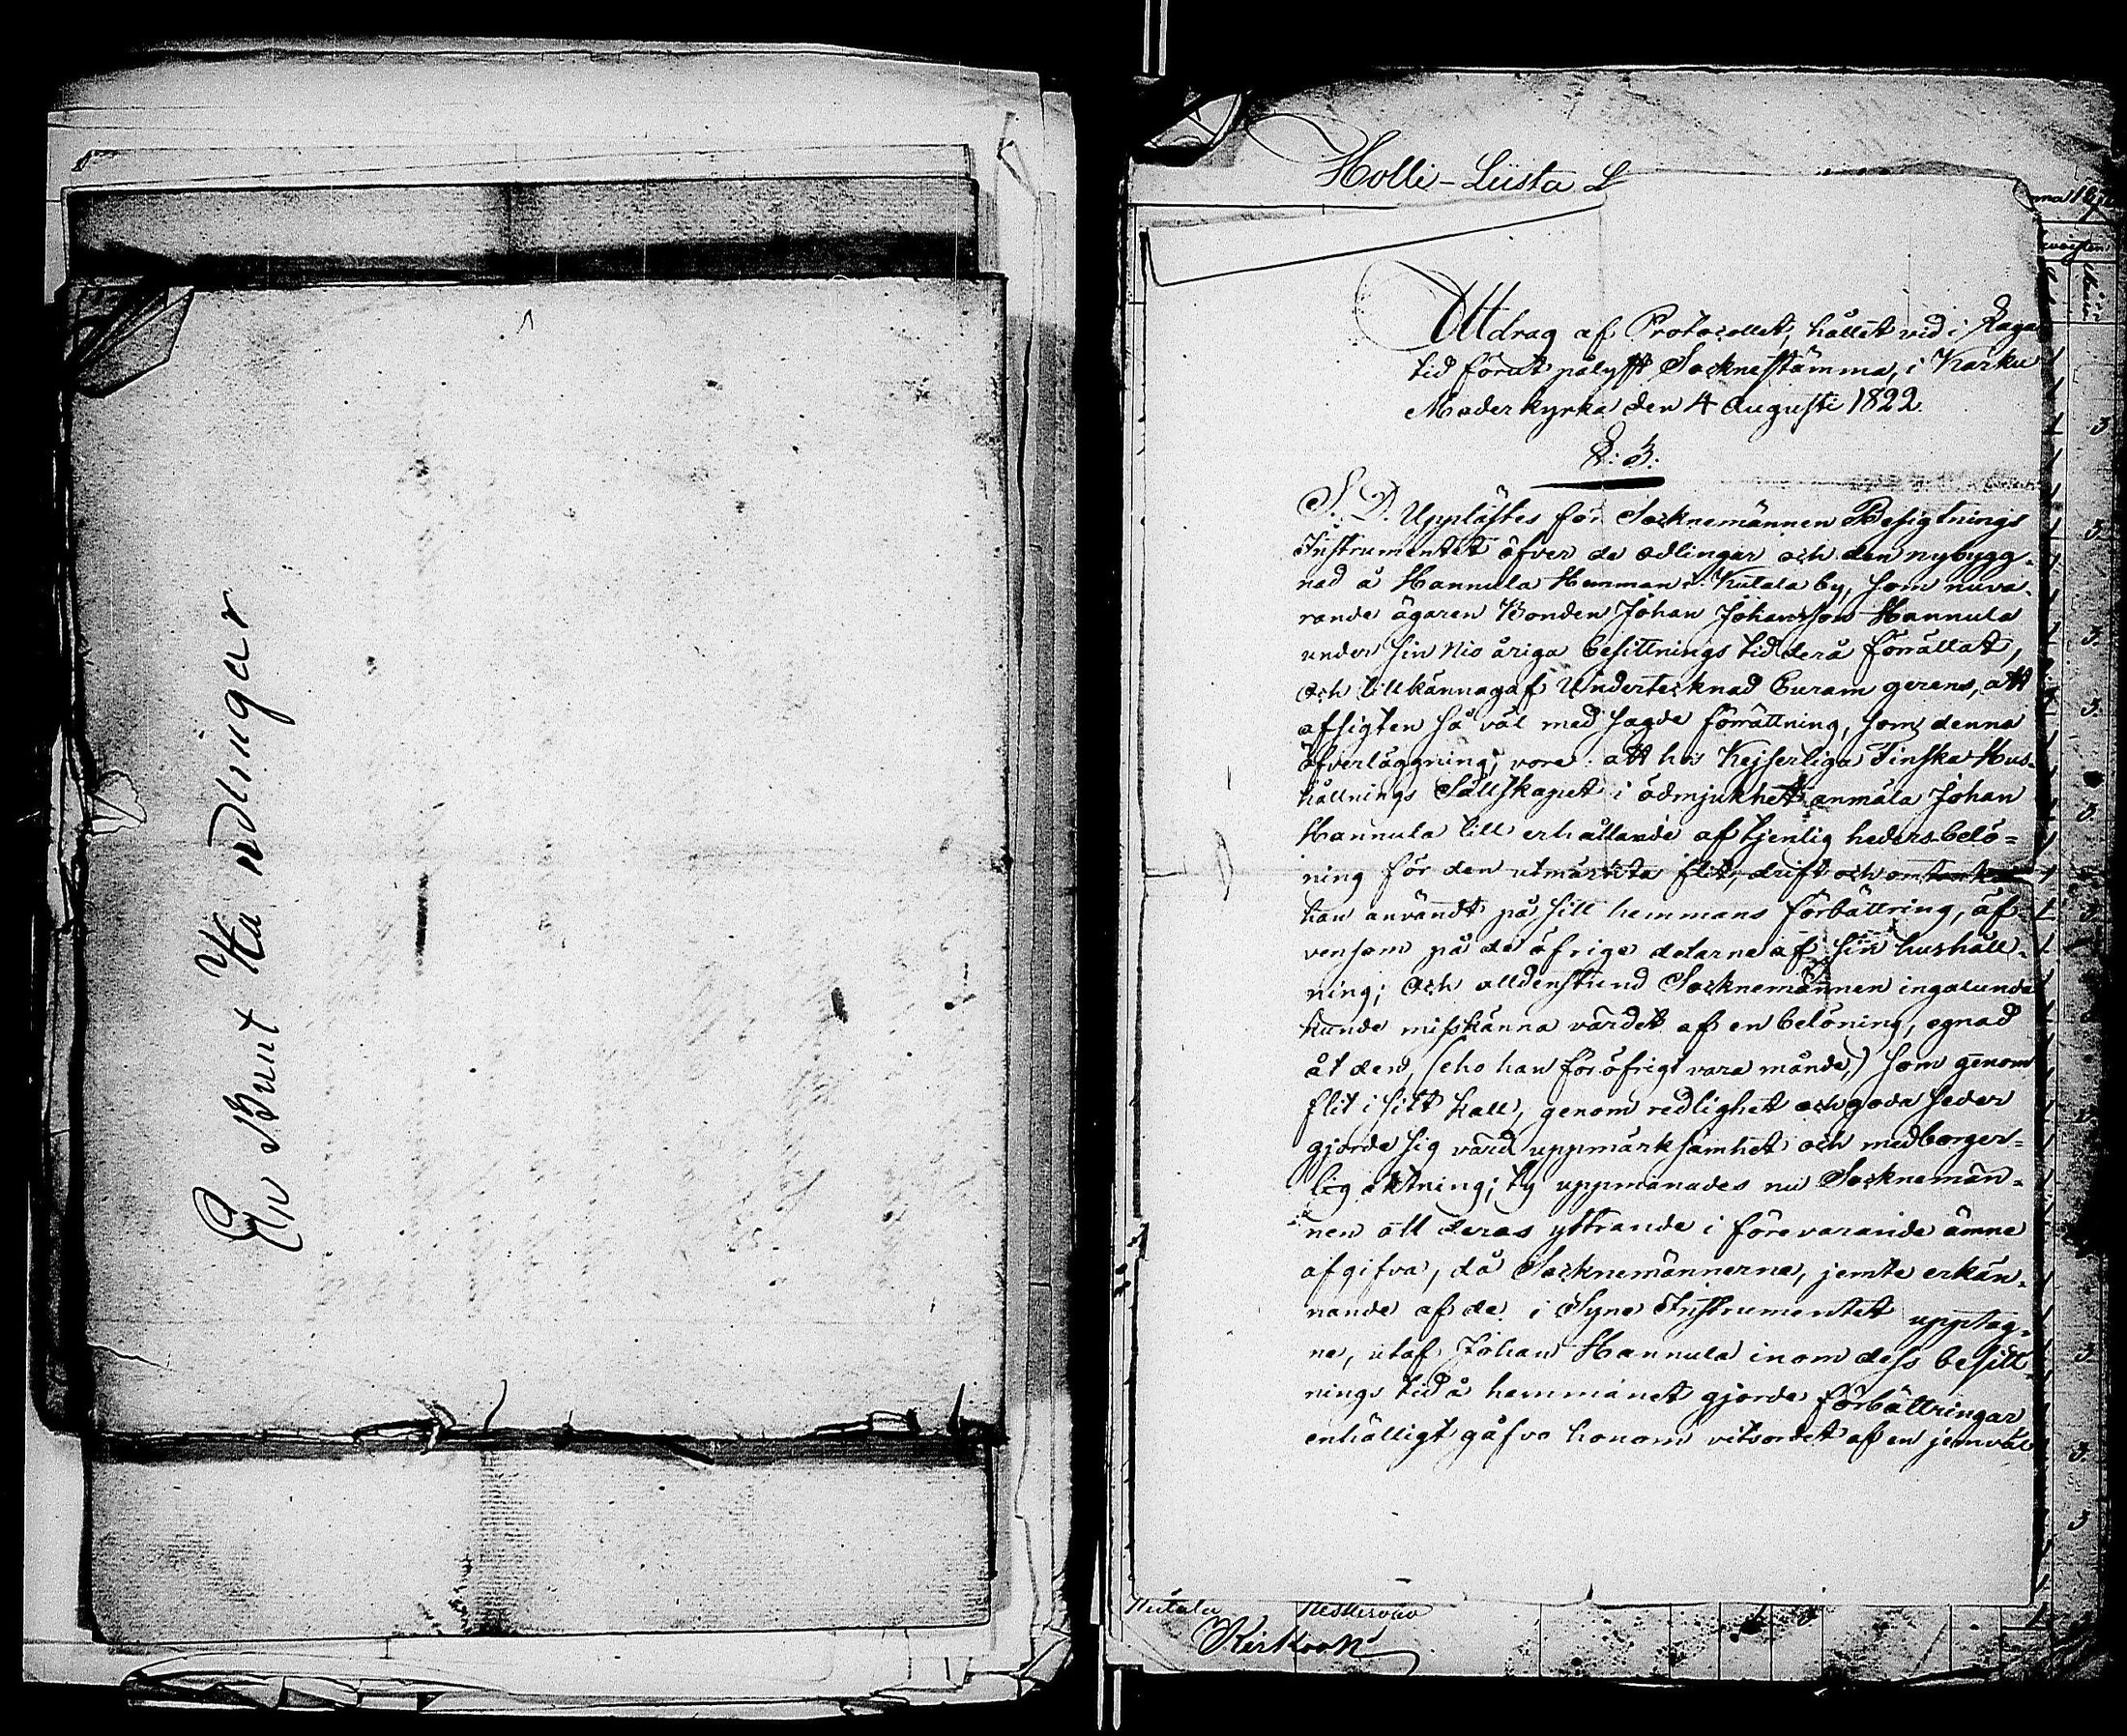 En Bunt Handlingar
Holli-Liista
Uttdrag af Protocollet, hållet vid i Laga
tid förut pålyst Socknestämma, i Karku
Moderkyrka den 4 Augusti 1822.
§: 3.
S. D. Upplästes för Socknemännen Besigtnings
Instrumentet öfver de odlingar och den nybygg-
nad å Hannula Hemman i Kutala by, som nuva-
rande ägaren Bonden Johan Johansson Hannula
under sin Nio åriga besittnings tid derå förrättat,
och tillkännagaf Undertecknad Curam gerens, att
afsigten så väl med sagde förrättning, som denna
öfverläggning, vore: att hos Kejserliga Finska Hus-
hållnings Sällskapet i ödmjukhet anmäla Johan
Hannula till erhållande af tjenlig hedersbelö=
ning för den utmärkta flit, drift och omtanke
han användt på sitt hemmans förbättring, äf-
vensom på de öfrige delarne af sin hushåll-
ning; Och alldenstund Socknemännen ingalunda
kunde misskänna värdet af en belöning, egnad
åt den, (eho han för öfrigt vara månde,) som genom
flit i sitt kall, genom redlighet och goda seder
gjorde sig värd uppmärksamhet och medborger=
lig aktning; ty uppmanades nu Socknemän-
nen att deras yttrande i förevarande ämne
afgifva, då Socknemännerne, jemte erkän-
nande af de i Syne Instrumentet upptag-
ne, utaf Johan Hannula inom dess besitt-
nings tid å hemmanet gjorde förbättringar
enhälligt gåfvo honom vitsordet af en jemväl
3
3.
3.
3.
3.
3.
3.
3.
3
Kutala